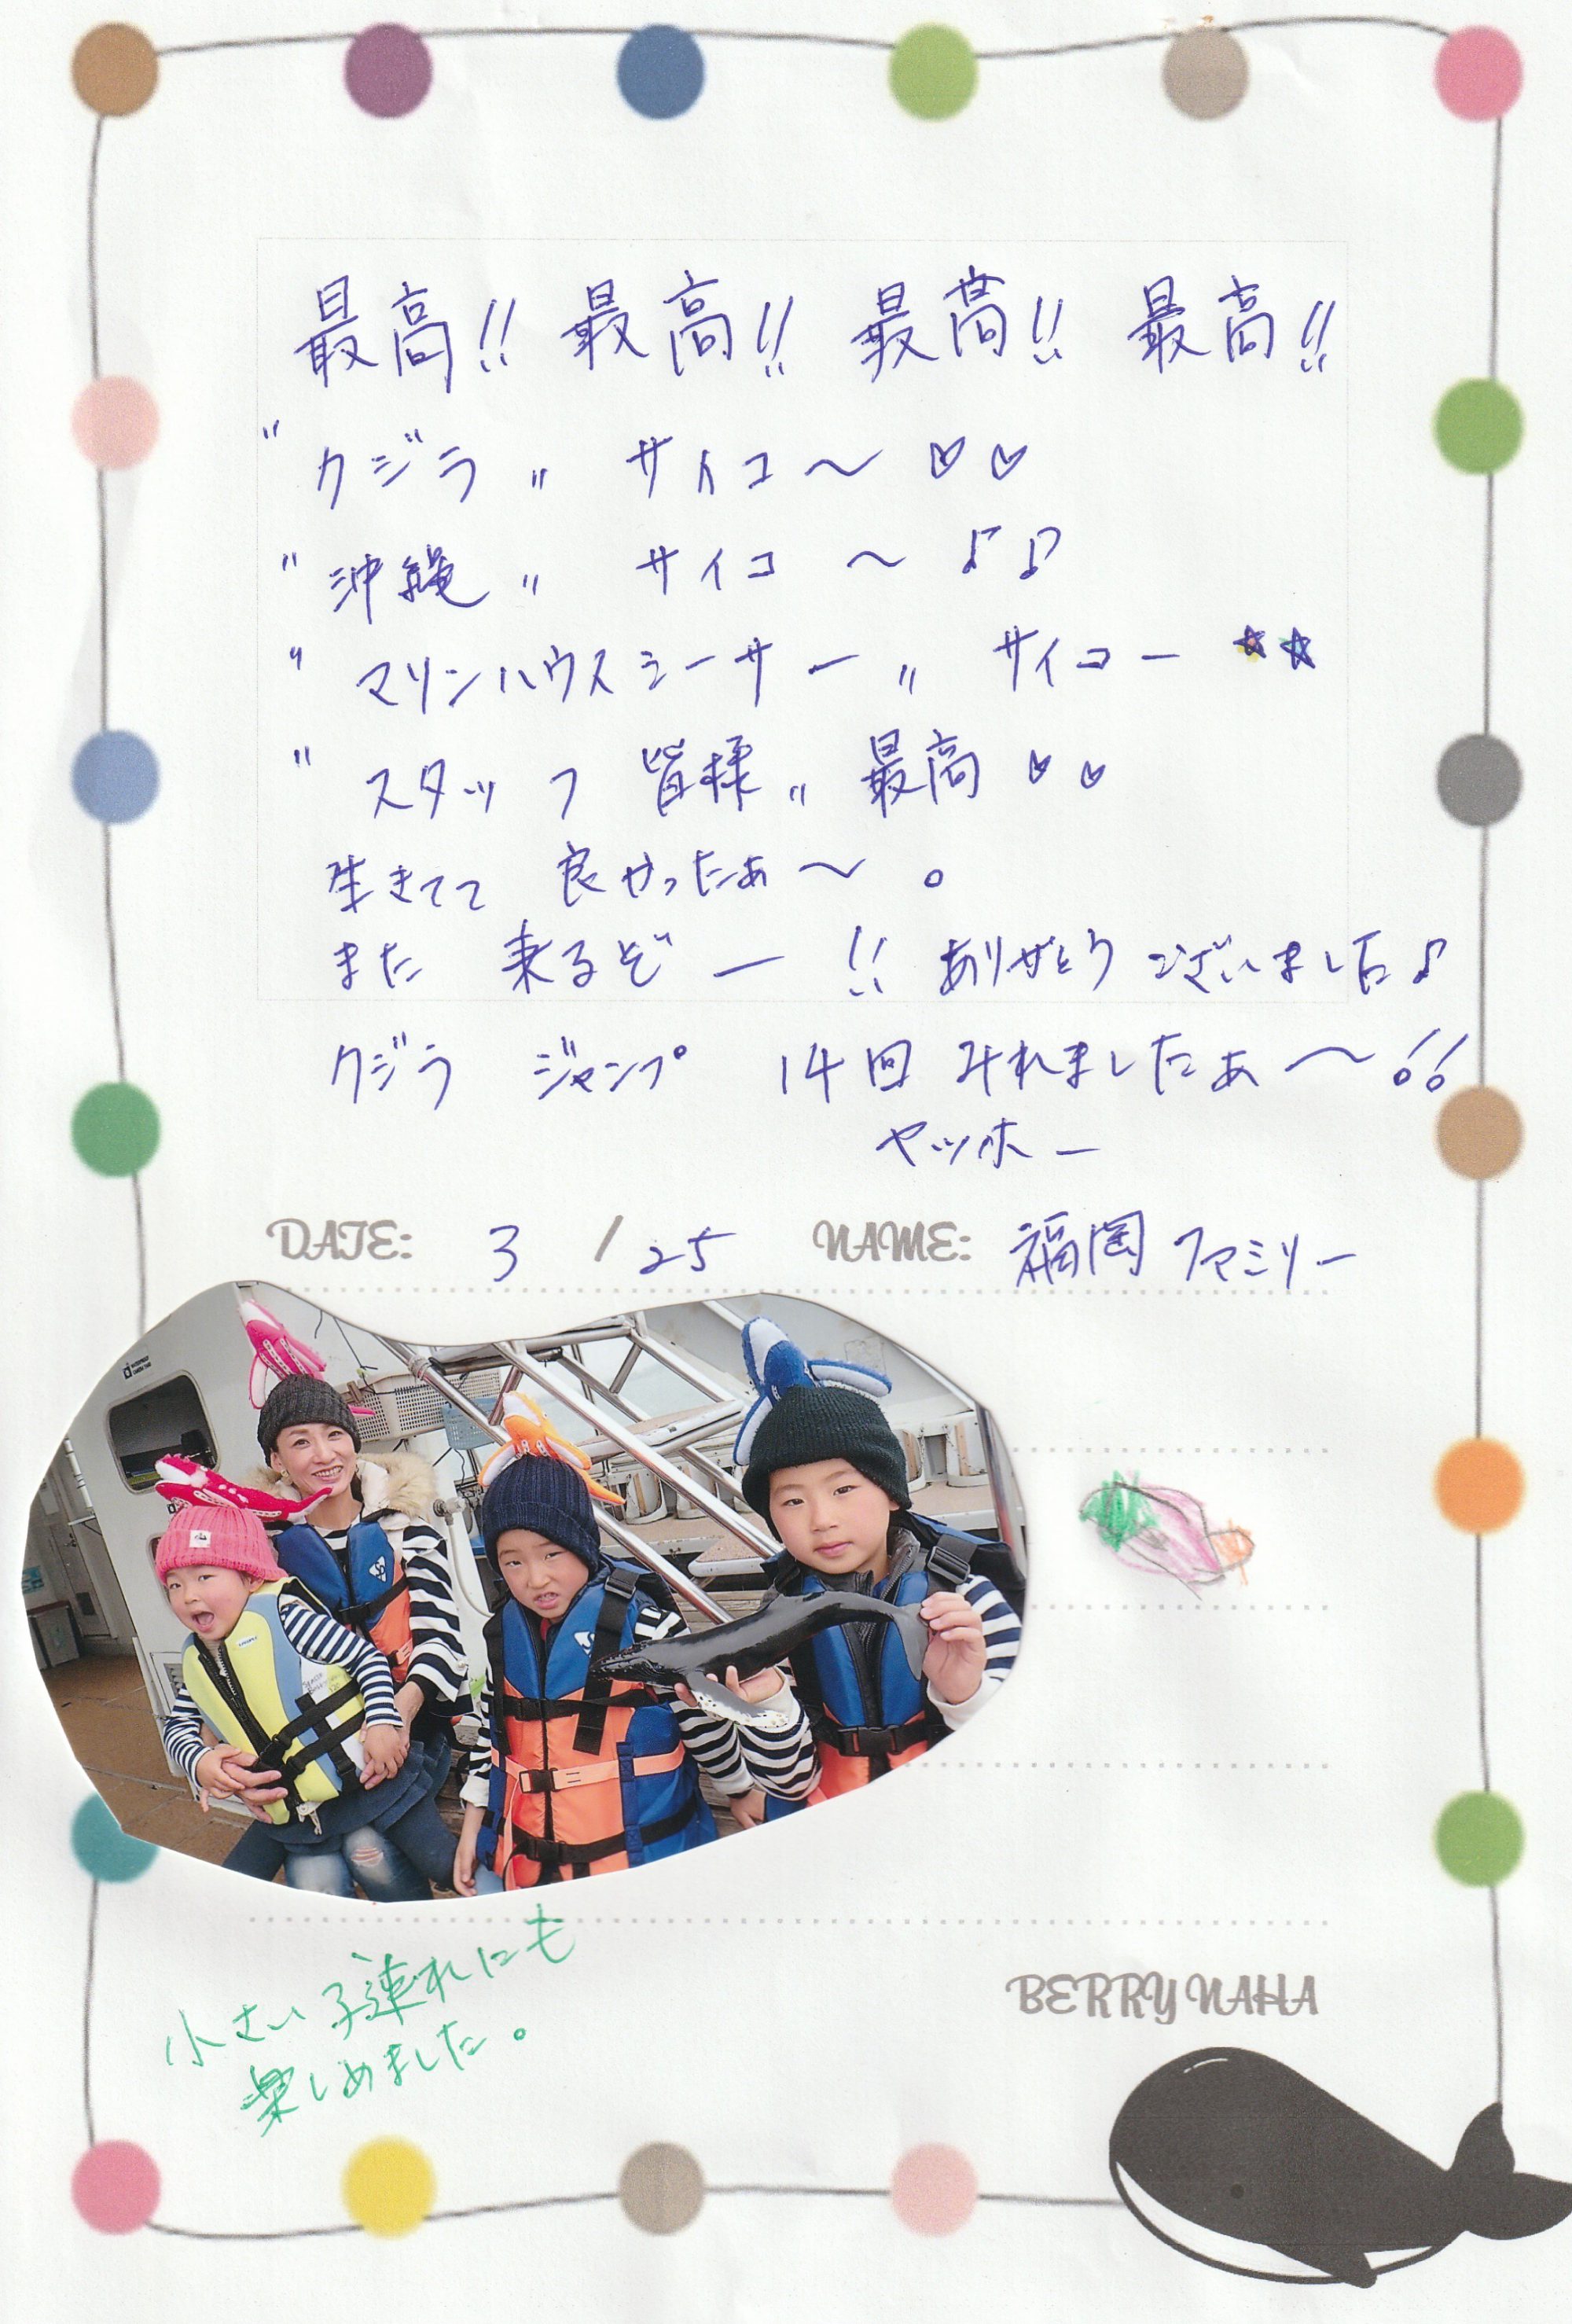 最高!! 最高!! 最高!! 最高!!
"クジラ" サイコ〜♡♡
"沖縄" サイコ〜♪♪
"マリンハウスシーサー" サイコー☆☆
"スタッフ 皆様" 最高♡♡
生きてて 良かったぁ〜。
また 来るぞー!! ありがとうございました♪
クジラ ジャンプ 14回 みれましたぁ〜!!
ヤッホー
DATE: 3/25 NAME: 福岡ファミリー
小さい子連れにも
楽しめました。
BERRY NAHA